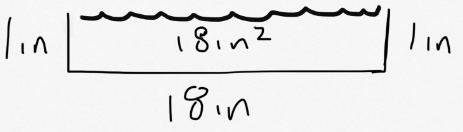 1in 18in² 1in
18in